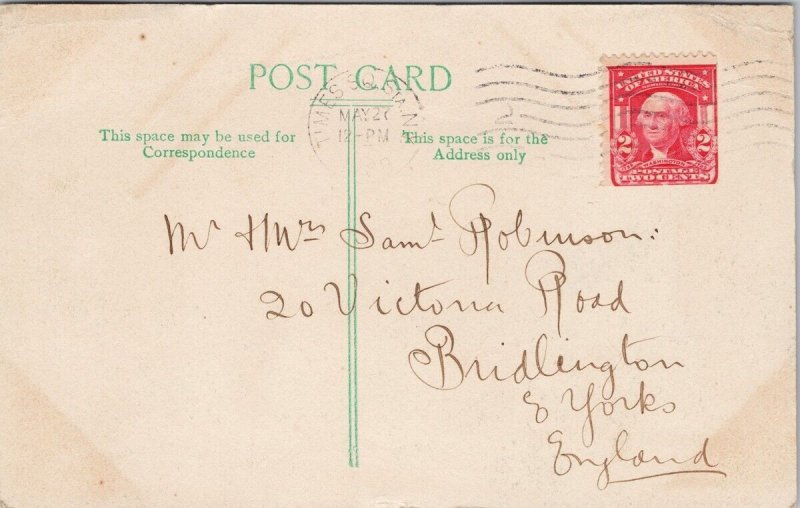 POST CARD
TIMES SQ.
MAY 27
12-PM
N.
2
UNITED STATES
OF AMERICA
2 WASHINGTON 2
POSTAGE
TWO CENTS
This space may be used for
Correspondence
This space is for the
Address only
Mr & Mrs Saml Robinson:
20 Victoria Road
Bridlington
E Yorks
England